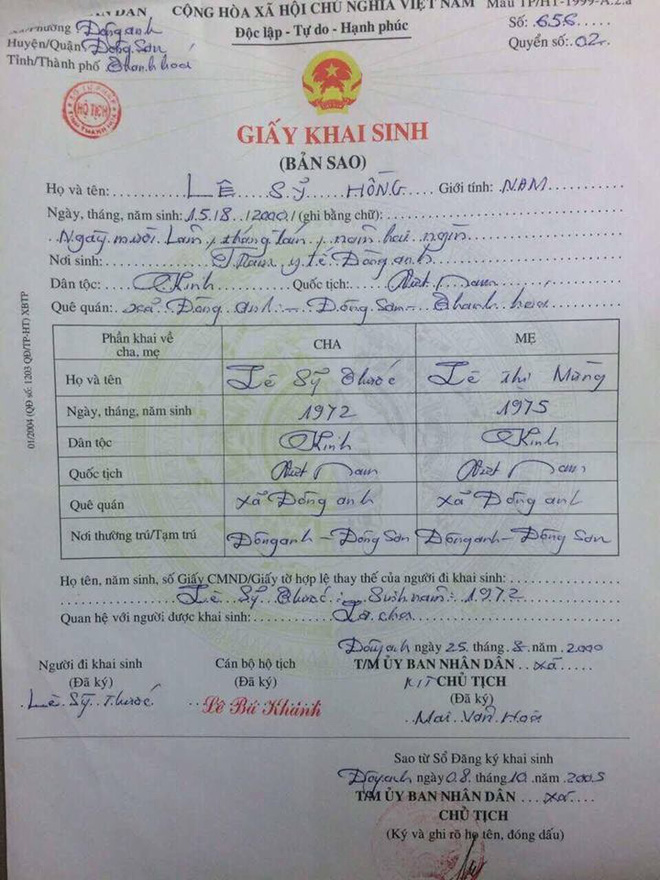 DÂN CỘNG HÒA XÃ HỘI CHỦ NGHĨA VIỆT NAM Mẫu TP/HT-1999-A.2.a
Phường Đông anh Độc lập - Tự do - Hạnh phúc Số: 656
Huyện/Quận Đông Sơn Quyển số: 02
Tỉnh/Thành phố Thanh hoá
SỞ TƯ PHÁP
HỘ TỊCH
TỈNH THANH HÓA
GIẤY KHAI SINH
(BẢN SAO)
Họ và tên: LÊ SỸ HỒNG Giới tính: NAM
Ngày, tháng, năm sinh: 15/8/2000 (ghi bằng chữ):
Ngày mười lăm, tháng tám, năm hai ngìn
Nơi sinh: Trạm y tế Đông anh
Dân tộc: Kinh Quốc tịch: Việt Nam
Quê quán: xã Đông anh - Đông Sơn - Thanh hoá
01/2004 (QĐ số: 1203 QĐ/TP-HT) XBTP
Phần khai về cha, mẹ CHA MẸ
Họ và tên Lê Sỹ Thước Lê Thị Mừng
Ngày, tháng, năm sinh 1972 1975
Dân tộc Kinh Kinh
Quốc tịch Việt Nam Việt Nam
Quê quán xã Đông anh xã Đông anh
Nơi thường trú/Tạm trú Đông anh - Đông Sơn Đông anh - Đông Sơn
Họ tên, năm sinh, số Giấy CMND/Giấy tờ hợp lệ thay thế của người đi khai sinh:
Lê Sỹ Thước: Sinh năm: 1972
Quan hệ với người được khai sinh: Là cha
Đông anh ngày 25 tháng 8 năm 2000
Người đi khai sinh Cán bộ hộ tịch T/M ỦY BAN NHÂN DÂN xã
(Đã ký) (Đã ký) K/T CHỦ TỊCH
Lê Sỹ Thước Lê Bá Khánh (Đã ký)
Mai Văn Hoà
Sao từ Sổ Đăng ký khai sinh
Đông anh ngày 08 tháng 10 năm 2005
T/M ỦY BAN NHÂN DÂN xã
CHỦ TỊCH
(Ký và ghi rõ họ tên, đóng dấu)